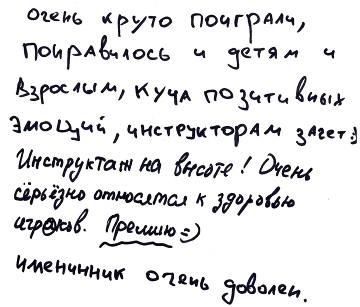 очень круто поиграли,
понравилось и детям и
взрослым, куча позитивных
эмоций, инструкторам зачет:)
Инструктаж на высоте! Очень
серьёзно относятся к здоровью
игроков. Премию =)
именинник очень доволен.